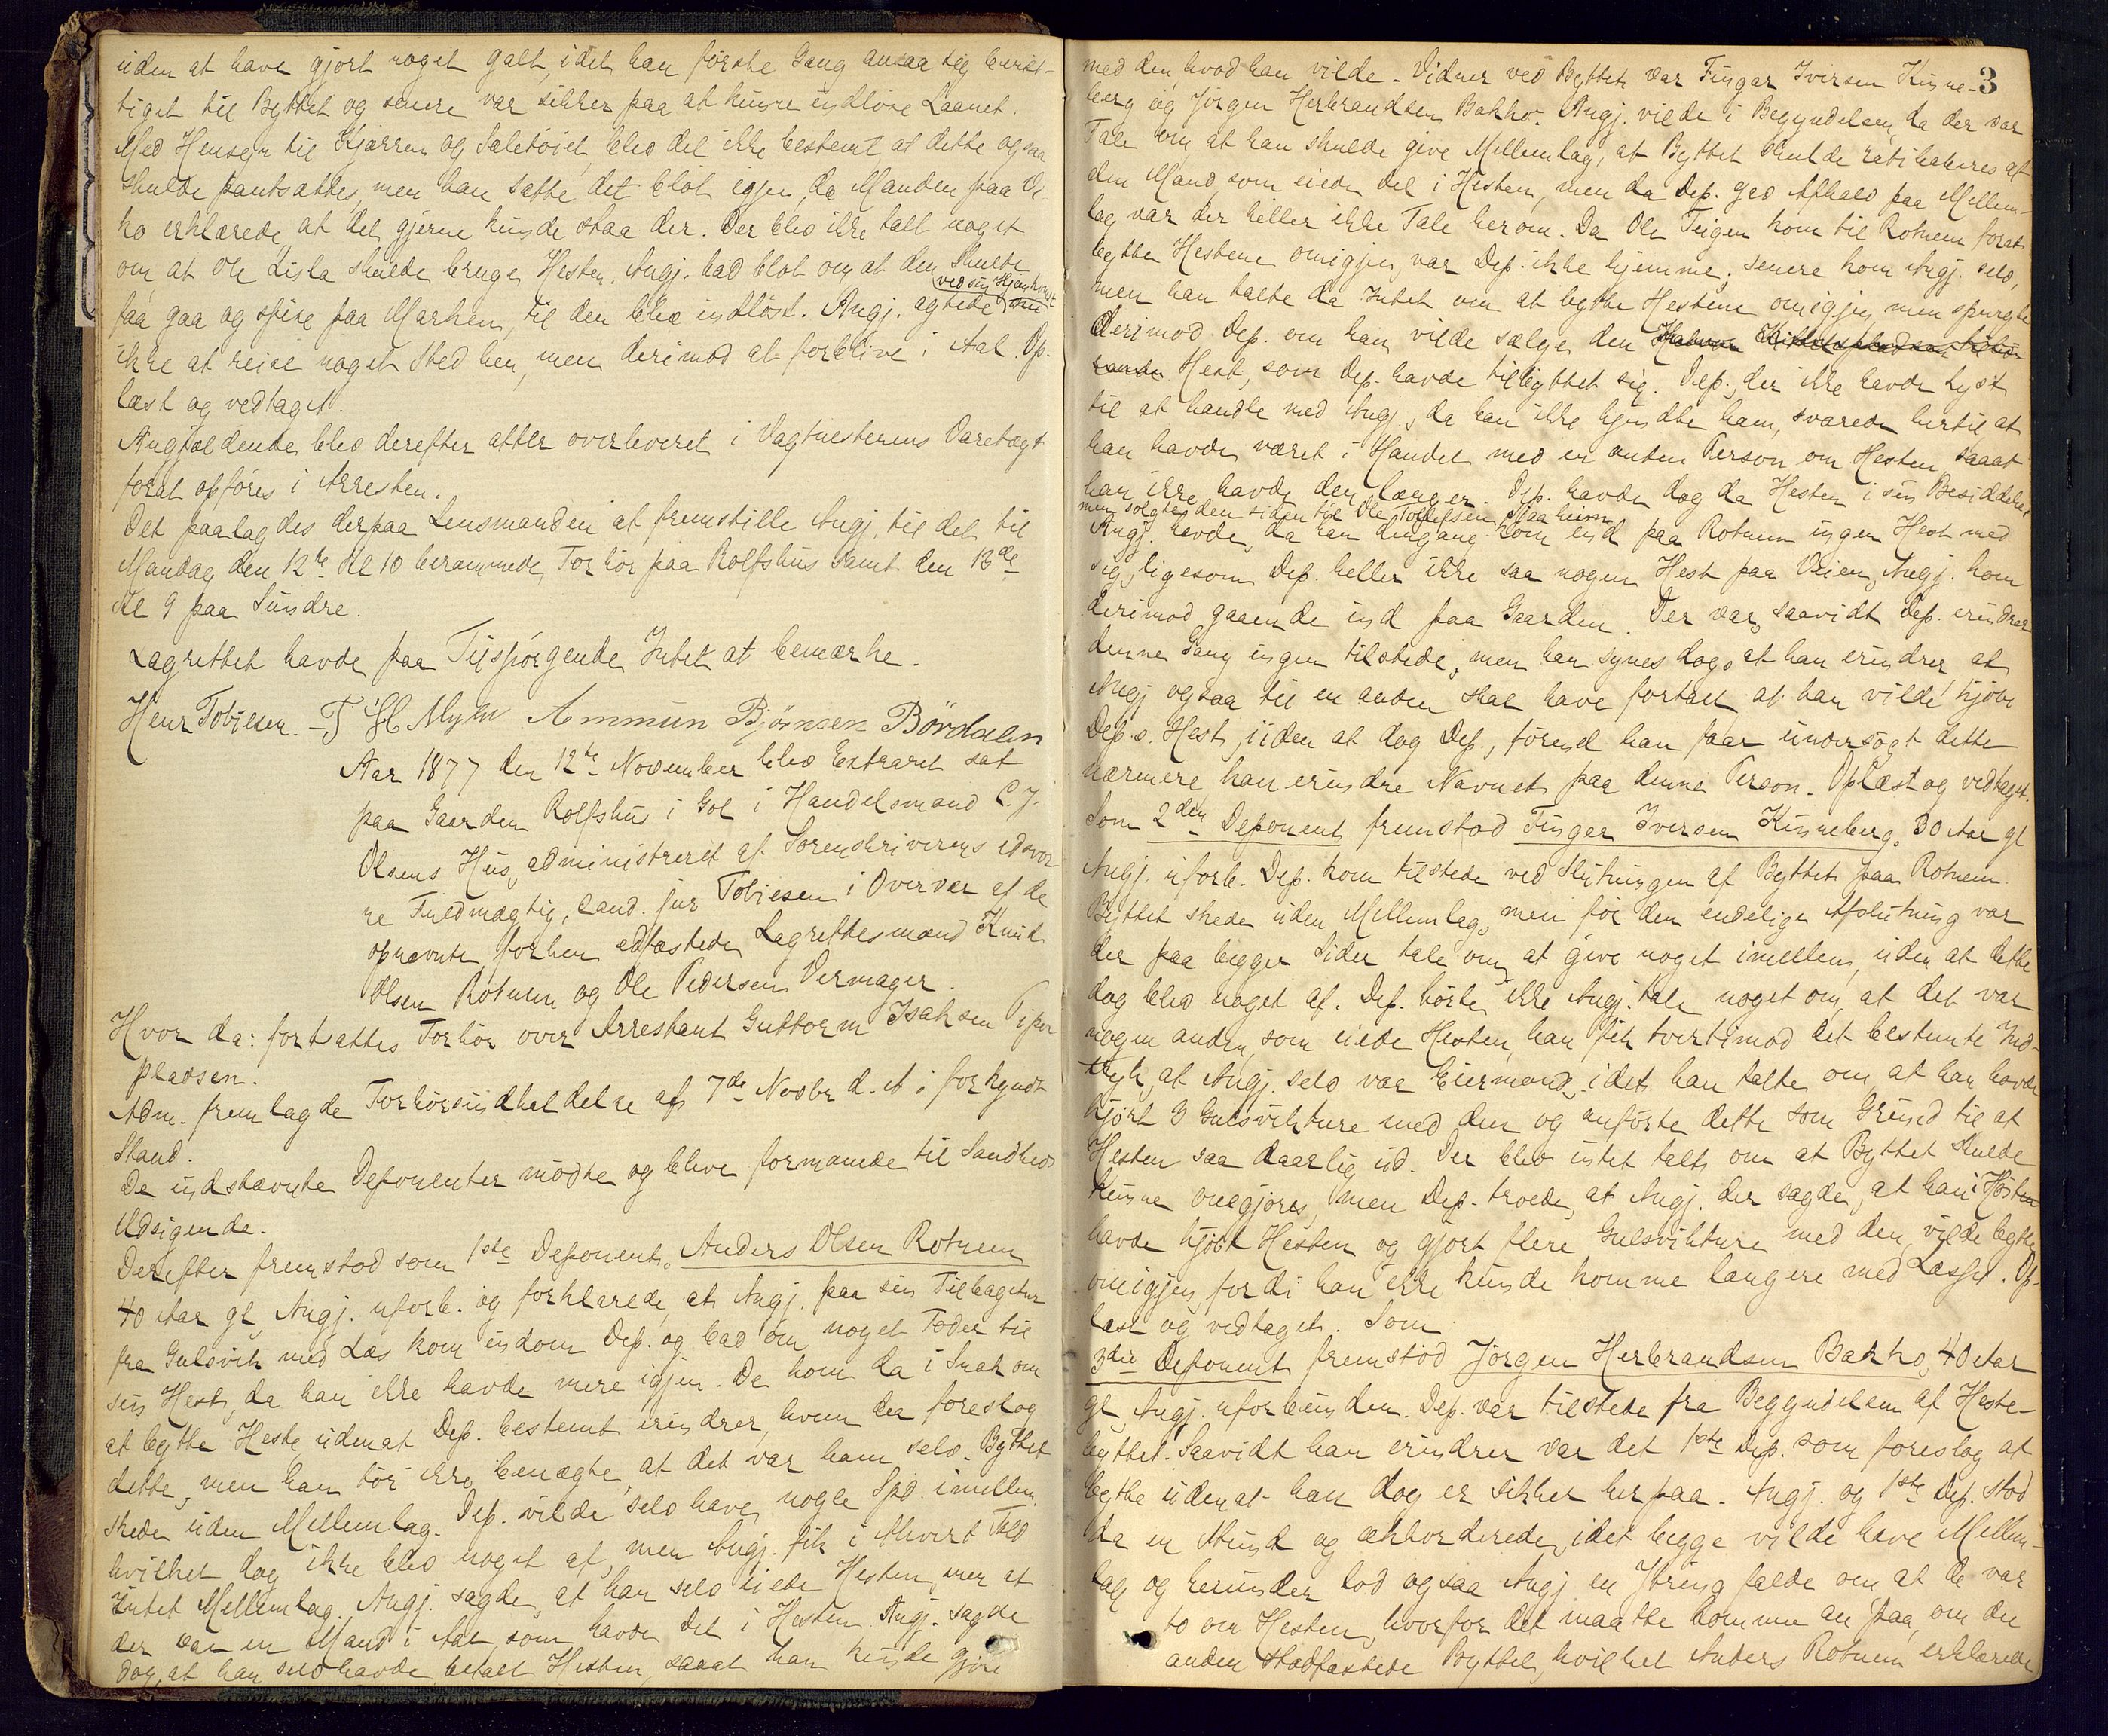 uden at have gjort noget galt, idet han første Gang ansaa sig beret-
tiget til Byttet og senere var sikker paa at kunne indløse Laanet.
Med Hensyn til Kjærren og Seletøiet blev det ikke bestemt at dette ogsaa
skulde pantsættes, men han satte det blot igjen, da Manden paa
ko erklærede, at det gjerne kunde staa der. Der blev ikke talt noget
om, at Ole Lisla skulde bruge Hesten. Angj. bad blot om at den skulde
faa gaa og spise paa Marken, til den blev indløst. Angj. agtede ved sin Hjemkomst
ikke at reise noget Sted hen, men derimod at forblive i Aal. Op-
læst og vedtaget.
Angjældende blev derefter atter overleveret i Vagtmesterens Varetægt
forat opføres i Arresten.
Det paalagdes derpaa Lensmanden at fremstille Angj. til det til
Mandag den 12te Kl 10 berammede Forhør paa Rolfshus samt den 13de
Kl 9 paa Sundre.
Lagrettet havde paa Tilspørgende Intet at bemærke.
Henr Tobiesen. T H Myhr Ammun Bjørnsen Børdalen
Aar 1877 den 12te November blev Extraret sat
paa Gaarden Rolfshus i Gol i Handelsmand C. J.
Olsens Hus, administreret af Sorenskriverens edsvor
ne Fuldmægtig, cand. jur Tobiesen i Overvær af de
opnævnte forhen edfæstede Lagrettesmænd Knud
Olsen Rotnem og Ole Pedersen Vermager.
Hvor da: fortsattes Forhør over Arrestant Guttorm Isaksen Piper
pladsen.
Adm. fremlagde Forhørsindkaldelse af 7de Novbr d. A i forkyndt
Stand.
De indstævnte Deponenter mødte og bleve formanede til Sandheds
Udsigende.
Derefter fremstod som 1ste Deponent, Anders Olsen Rotnem
40 Aar gl, Angj. uforb. og forklarede, at Angj. paa sin Tilbagetur
fra Gulsvik med Læs kom indom Dep. og bad om noget Foder til
sin Hest, da han ikke havde mere igjen. De kom da i Snak om
at bytte Heste, udenat Dep. bestemt erindrer, hvem der foreslog
dette, men han tør ikke benægte, at det var ham selv. Byttet
skede uden Mellemlag. Dep. vilde selv have nogle Spd. imellem
hvilket dog ikke blev noget af, men Angj. fik i Ahvert Fald
Intet Mellemlag. Angj. sagde, at han selv eiede Hesten, men at
der var en Mand i Aal, som havde Del i Hesten. Angj. sagde
dog, at han selv havde betalt Hesten, saaat han kunde gjøre
3
med den hvad han vilde. Vidner ved Byttet var Fingar Iversen Kinne-
berg og Jørgen Herbrandsen Bakko. Angj. vilde i Begyndelsen, da der var
Tale om at han skulde give Mellemlag, at Byttet skulde ratihaberes af
den Mand som eiede Del i Hesten, men da Dep. gav Afkald paa Mellem-
lag var der heller ikke Tale herom. Da Ole Teigen kom til Rotnem forat
bytte Hestene omigjen, var Dep. ikke hjemme; senere kom Angj. selv,
men han talte da Intet om at bytte Hestene omigjen, men spurgte
derimod Dep. om han vilde sælge den
Hest, som Dep. havde tilbyttet sig. Dep., der ikke havde Lyst
til at handle med Angj., da han ikke kjendte ham, svarede hertil at
han havde været i Handel med en anden Person om Hesten, saaat
han ikke havde den længer. Dep. havde dog da Hesten i sin Besiddelse
men solgte den siden til Ole Tollefsen Haaheim
Angj. havde, da han dengang kom ind paa Rotnem ingen Hest med
sig, ligesom Dep. heller ikke saa nogen Hest paa Veien, Angj. kom
derimod gaaende ind paa Gaarden. Der var, saavidt Dep. erindrer
denne Gang ingen tilstede, men han synes dog, at han erindrer, at
Angj. ogsaa til en anden skal have fortalt, at han vilde kjøbe
Dep.s. Hest, uden at dog Dep., førend han faar undersøgt dette
nærmere, kan erindre Navnet paa denne Person. Oplæst og vedtaget.
Som 2den Deponent fremstod Fingar Iversen Kinneberg, 30 Aar gl
Angj. uforb. Dep. kom tilstede ved Slutningen af Byttet paa Rotnem.
Byttet skede uden Mellemlag, men før den endelige Afslutning var
der paa begge Sider tale om, at give noget imellem, uden at dette
dog blev noget af. Dep. hørte ikke Angj. tale noget om, at det var
nogen anden, som eiede Hesten, han fik tvertimod det bestemte Ind-
tryk, at Angj. selv var Eiermand, idet han talte om, at han havde
kjørt 3 Gulsvikture med den og anførte dette som Grund til at
Hesten saa daarlig ud. Der blev intet talt om at Byttet skulde
kunne omgjøres, men Dep. troede, at Angj. der sagde, at han i Høsten
havde kjøbt Hesten og gjort flere Gulsvikture med den, vilde bytte
omigjen, fordi han ikke kunde komme længere med Læsset. Op-
læst og vedtaget. Som
3die Deponent fremstod Jørgen Herbrandsen Bakko, 40 Aar
gl, Angj. uforbunden. Dep. var tilstede fra Begyndelsen af Heste-
byttet. Saavidt han erindrer var det 1ste Dep. som foreslog at
bytte udenat han dog er sikker herpaa. Angj. og 1ste Dep. stod
da en Stund og akkorderede, idet begge vilde have Mellem-
lag og herunder lod ogsaa Angj en Ytring falde om at de var
to om Hesten, hvorfor det maatte komme an paa, om den
anden stadfæstede Byttet, hvilket Anders Rotnem erklærede